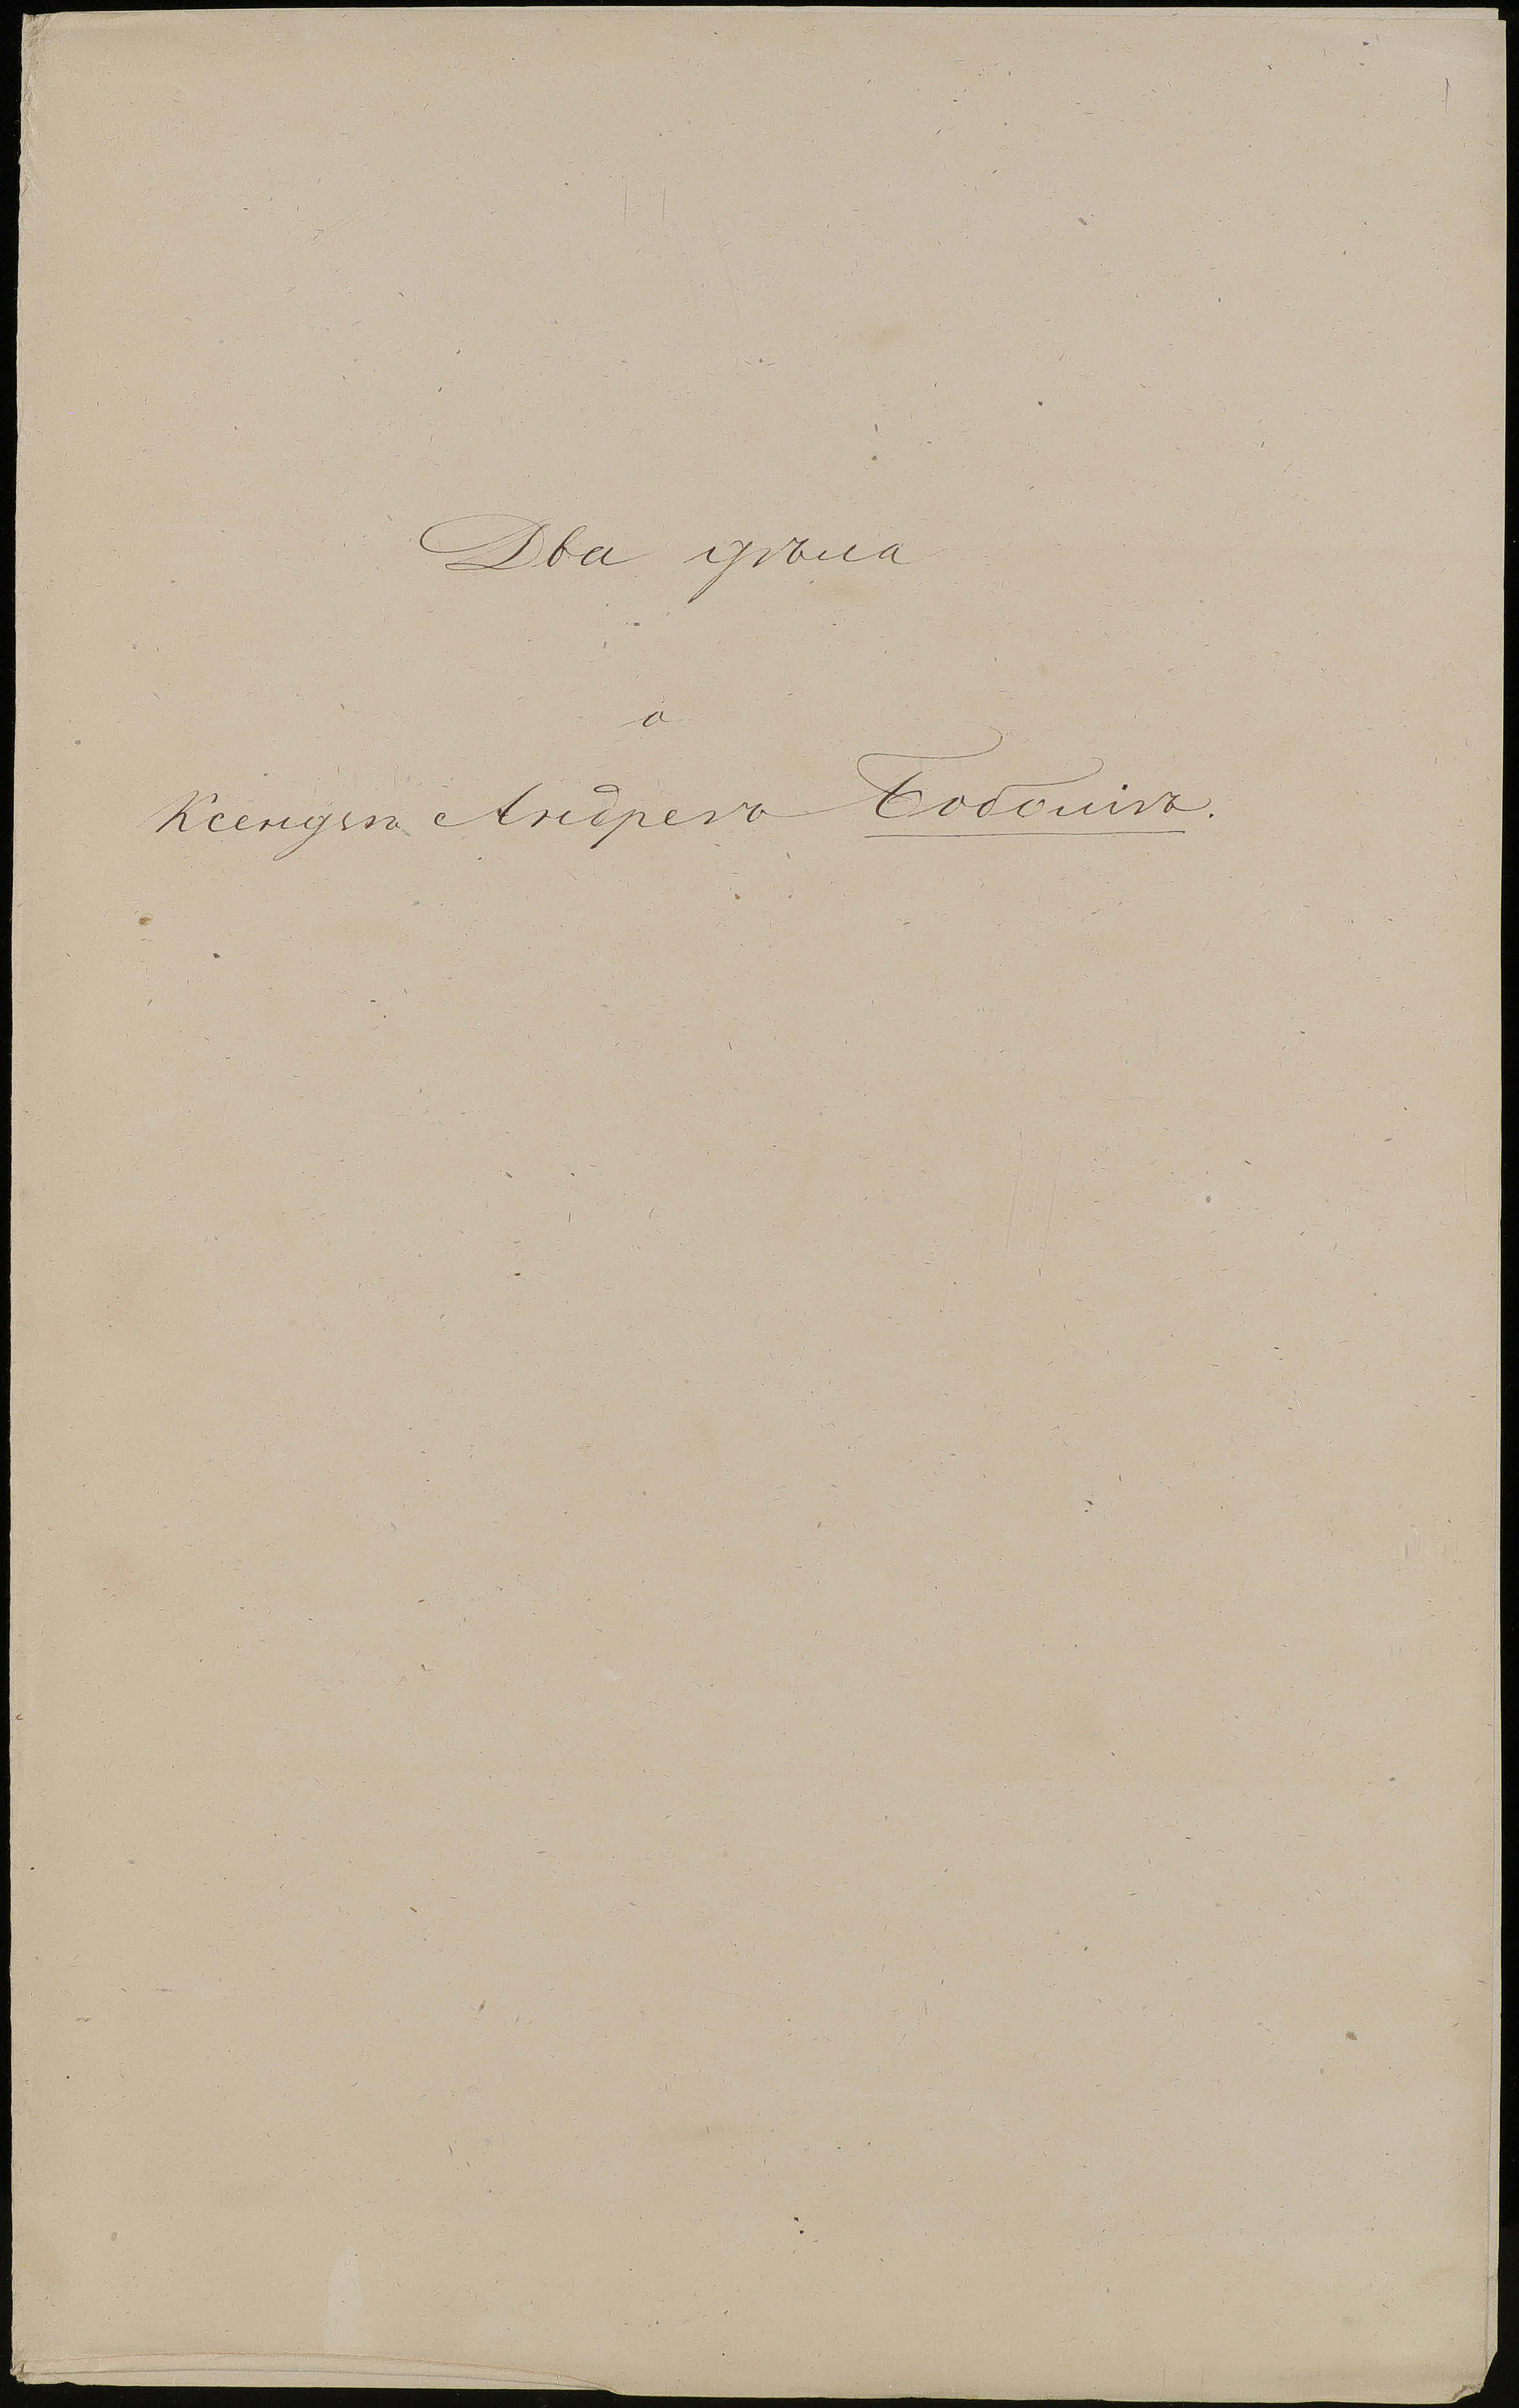 1
Два дѣла
о
Ксендзѣ Андреѣ Боболіѣ.